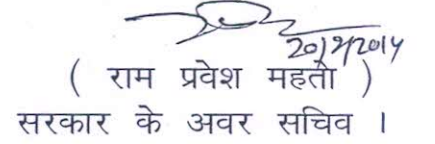 20/2/2014
( राम प्रवेश महतो )
सरकार के अवर सचिव ।